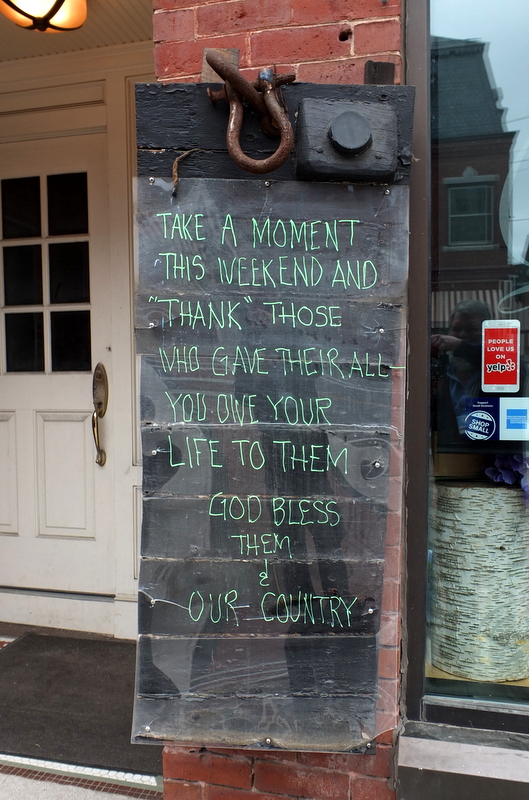 TAKE A MOMENT
THIS WEEKEND AND
"THANK" THOSE
WHO GAVE THEIR ALL—
YOU OWE YOUR
LIFE TO THEM
GOD BLESS
THEM
&
OUR COUNTRY
PEOPLE
LOVE US
ON
yelp
SHOP
SMALL